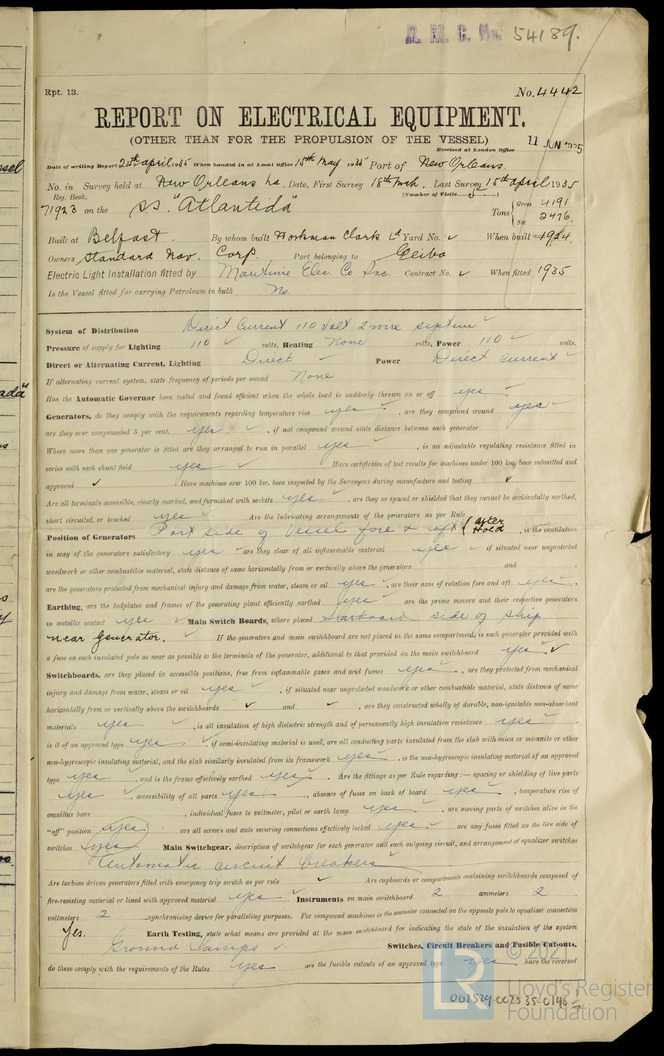 R. M. C. No. 54189.
Rpt. 13.
No. 4442
REPORT ON ELECTRICAL EQUIPMENT.
(OTHER THAN FOR THE PROPULSION OF THE VESSEL)
Received at London Office 11 JUN 1935
Date of writing Report 24th april 1935 When handed in at Local Office 15th May 1935 Port of New Orleans.
No. in Survey held at New Orleans La. Date, First Survey 18th Mch. Last Survey 15th april 1935
Reg. Book. (Number of Visits 5)
71923 on the S.S. "Atlantida" Tons { Gross 4191
Net 2496.
Built at Belfast. By whom built Workman Clark Ld Yard No. ✓ When built 1924.
Owners Standard Nav. Corp. Port belonging to Ceiba
Electric Light Installation fitted by Maritime Elec. Co Inc. Contract No. ✓ When fitted 1935
Is the Vessel fitted for carrying Petroleum in bulk No.
System of Distribution Direct Current 110 Volt 2 wire system ✓
Pressure of supply for Lighting 110 ✓ volts, Heating None volts, Power 110 ✓ volts.
Direct or Alternating Current, Lighting Direct ✓ Power Direct Current ✓
If alternating current system, state frequency of periods per second None
Has the Automatic Governor been tested and found efficient when the whole load is suddenly thrown on or off yes ✓
Generators, do they comply with the requirements regarding temperature rise yes ✓ , are they compound wound yes ✓
are they over compounded 5 per cent. yes ✓ , if not compound wound state distance between each generator
Where more than one generator is fitted are they arranged to run in parallel yes ✓ , is an adjustable regulating resistance fitted in
series with each shunt field yes ✓ Have certificates of test results for machines under 100 kw. been submitted and
approved ✓ Have machines over 100 kw. been inspected by the Surveyors during manufacture and testing ✓
Are all terminals accessible, clearly marked, and furnished with sockets yes ✓ , are they so spaced or shielded that they cannot be accidentally earthed,
short circuited, or touched yes ✓ Are the lubricating arrangements of the generators as per Rule
Position of Generators Port side of Vessel fore & aft (after Hold , is the ventilation
in way of the generators satisfactory yes ✓ are they clear of all inflammable material yes ✓ if situated near unprotected
woodwork or other combustible material, state distance of same horizontally from or vertically above the generators and
are the generators protected from mechanical injury and damage from water, steam or oil yes ✓ , are their axes of rotation fore and aft yes ✓
Earthing, are the bedplates and frames of the generating plant efficiently earthed yes ✓ are the prime movers and their respective generators
in metallic contact yes ✓ Main Switch Boards, where placed Starboard side of ship
near Generator. ✓ If the generators and main switchboard are not placed in the same compartment, is each generator provided with
a fuse on each insulated pole as near as possible to the terminals of the generator, additional to that provided on the main switchboard yes ✓
Switchboards, are they placed in accessible positions, free from inflammable gases and acid fumes yes ✓ , are they protected from mechanical
injury and damage from water, steam or oil yes ✓ , if situated near unprotected woodwork or other combustible material, state distance of same
horizontally from or vertically above the switchboards ✓ and ✓ , are they constructed wholly of durable, non-ignitable non-absorbent
materials yes ✓ , is all insulation of high dielectric strength and of permanently high insulation resistance yes ✓
is it of an approved type yes ✓ , if semi-insulating material is used, are all conducting parts insulated from the slab with mica or micanite or other
non-hygroscopic insulating material, and the slab similarly insulated from its framework yes ✓ , is the non-hygroscopic insulating material of an approved
type yes ✓ , and is the frame effectively earthed yes ✓ . Are the fittings as per Rule regarding :— spacing or shielding of live parts
yes ✓ , accessibility of all parts yes ✓ , absence of fuses on back of board yes ✓ , temperature rise of
omnibus bars , individual fuses to voltmeter, pilot or earth lamp yes ✓ , are moving parts of switches alive in the
"off" position yes are all screws and nuts securing connections effectively locked yes ✓ are any fuses fitted on the live side of
switches yes Main Switchgear, description of switchgear for each generator and each outgoing circuit, and arrangement of equalizer switches
automatic circuit breakers
Are turbine driven generators fitted with emergency trip switch as per rule ✓ Are cupboards or compartments containing switchboards composed of
fire-resisting material or lined with approved material yes ✓ Instruments on main switchboard 2 ammeters 2
voltmeters 2 synchronising device for paralleling purposes. For compound machines is the ammeter connected on the opposite pole to equaliser connection
Yes. Earth Testing, state what means are provided at the main switchboard for indicating the state of the insulation of the system
Ground Lamps ✓ Switches, Circuit Breakers and Fusible Cutouts,
do these comply with the requirements of the Rules yes are the fusible cutouts of an approved type yes ✓ have the reversed
LR © 2021
Lloyd's Register
Foundation
002529-002535-0196